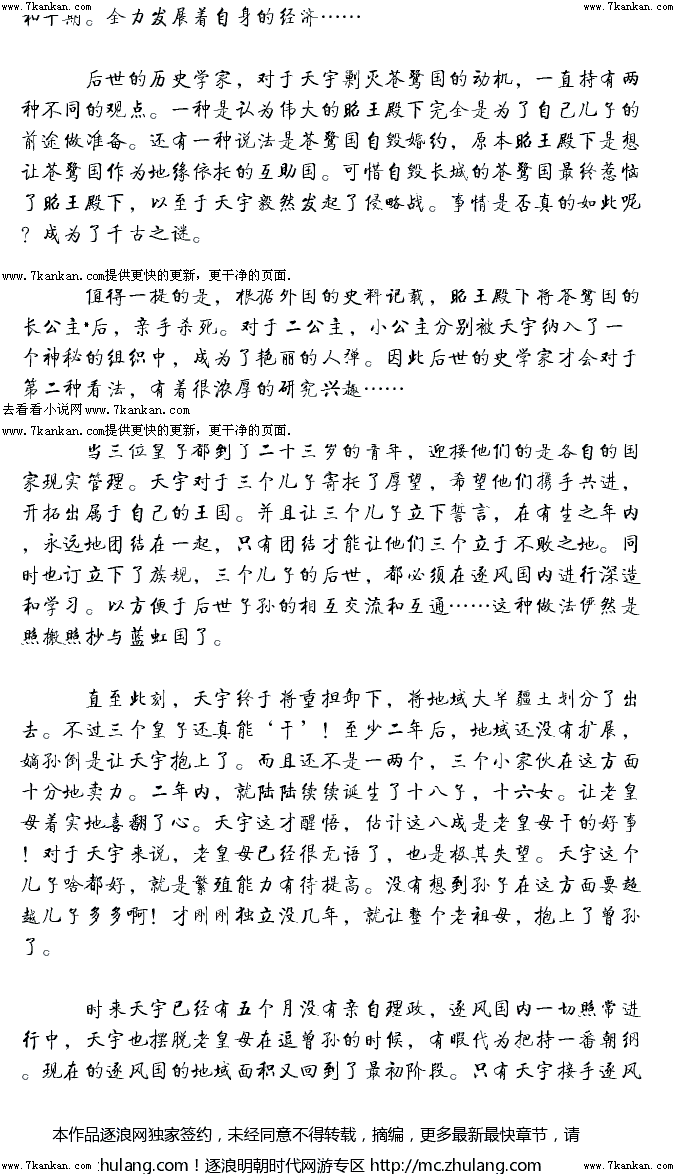 www.7kankan.com www.7kankan.com
和平期。全力发展着自身的经济……
后世的历史学家，对于天宇剿灭苍鹭国的动机，一直持有两
种不同的观点。一种是认为伟大的昭王殿下完全是为了自己儿子的
前途做准备。还有一种说法是苍鹭国自毁婚约，原本昭王殿下是想
让苍鹭国作为地缘依托的互助国。可惜自毁长城的苍鹭国最终惹恼
了昭王殿下，以至于天宇毅然发起了侵略战。事情是否真的如此呢
？成为了千古之谜。
www.7kankan.com提供更快的更新，更干净的页面.
值得一提的是，根据外国的史料记载，昭王殿下将苍鹭国的
长公主*后，亲手杀死。对于二公主，小公主分别被天宇纳入了一
个神秘的组织中，成为了艳丽的人弹。因此后世的史学家才会对于
第二种看法，有着很浓厚的研究兴趣……
去看看小说网www.7kankan.com
www.7kankan.com提供更快的更新，更干净的页面.
当三位皇子都到了二十三岁的青年，迎接他们的是各自的国
家现实管理。天宇对于三个儿子寄托了厚望，希望他们携手共进，
开拓出属于自己的王国。并且让三个儿子立下誓言，在有生之年内
，永远地团结在一起，只有团结才能让他们三个立于不败之地。同
时也订立下了族规，三个儿子的后世，都必须在逐风国内进行深造
和学习。以方便于后世子孙的相互交流和互通……这种做法俨然是
照搬照抄与蓝虹国了。
直至此刻，天宇终于将重担卸下，将地域大半疆土划分了出
去。不过三个皇子还真能‘干’！至少二年后，地域还没有扩展，
嫡孙倒是让天宇抱上了。而且还不是一两个，三个小家伙在这方面
十分地卖力。二年内，就陆陆续续诞生了十八子，十六女。让老皇
母着实地喜翻了心。天宇这才醒悟，估计这八成是老皇母干的好事
！对于天宇来说，老皇母已经很无语了，也是极其失望。天宇这个
儿子啥都好，就是繁殖能力有待提高。没有想到孙子在这方面要超
越儿子多多啊！才刚刚独立没几年，就让整个老祖母，抱上了曾孙
了。
时来天宇已经有五个月没有亲自理政，逐风国内一切照常进
行中，天宇也摆脱老皇母在逗曾孙的时候，有暇代为把持一番朝纲
。现在的逐风国的地域面积又回到了最初阶段。只有天宇接手逐风
本作品逐浪网独家签约，未经同意不得转载，摘编，更多最新最快章节，请
www.7kankan.com zhulang.com！逐浪明朝时代网游专区 http://mc.zhulang.com www.7kankan.com